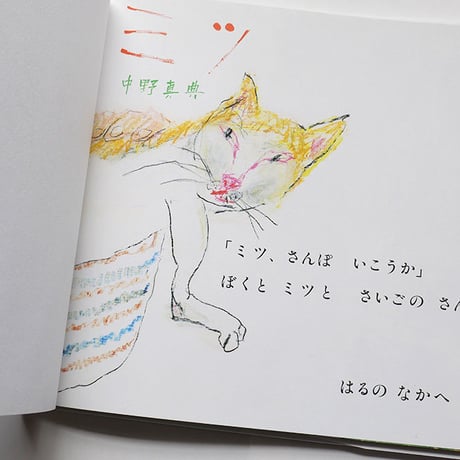 ミツ
中野真典
「ミツ、さんぽ　いこうか」
ぼくと ミツと　さいごの さん
はるの なかへ